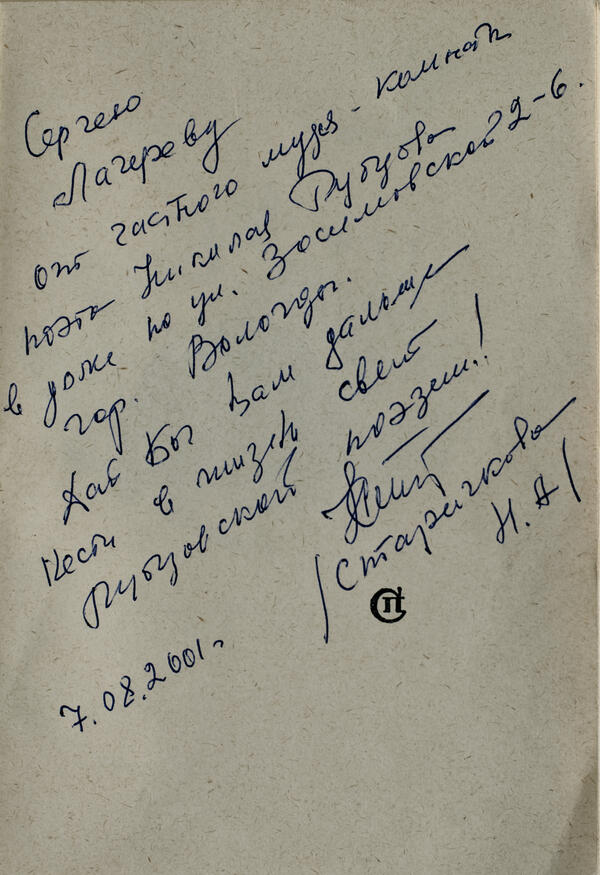 Сергею
Лагереву
от частного музея-комнаты
поэта Николая Рубцова
в доме по ул. Зосимовской 2-6.
гор. Вологды.
Дай Бог Вам дальше
нести в жизнь свет
Рубцовской поэзии!
/Старичкова
Н. А/
СП
7.08.2001г